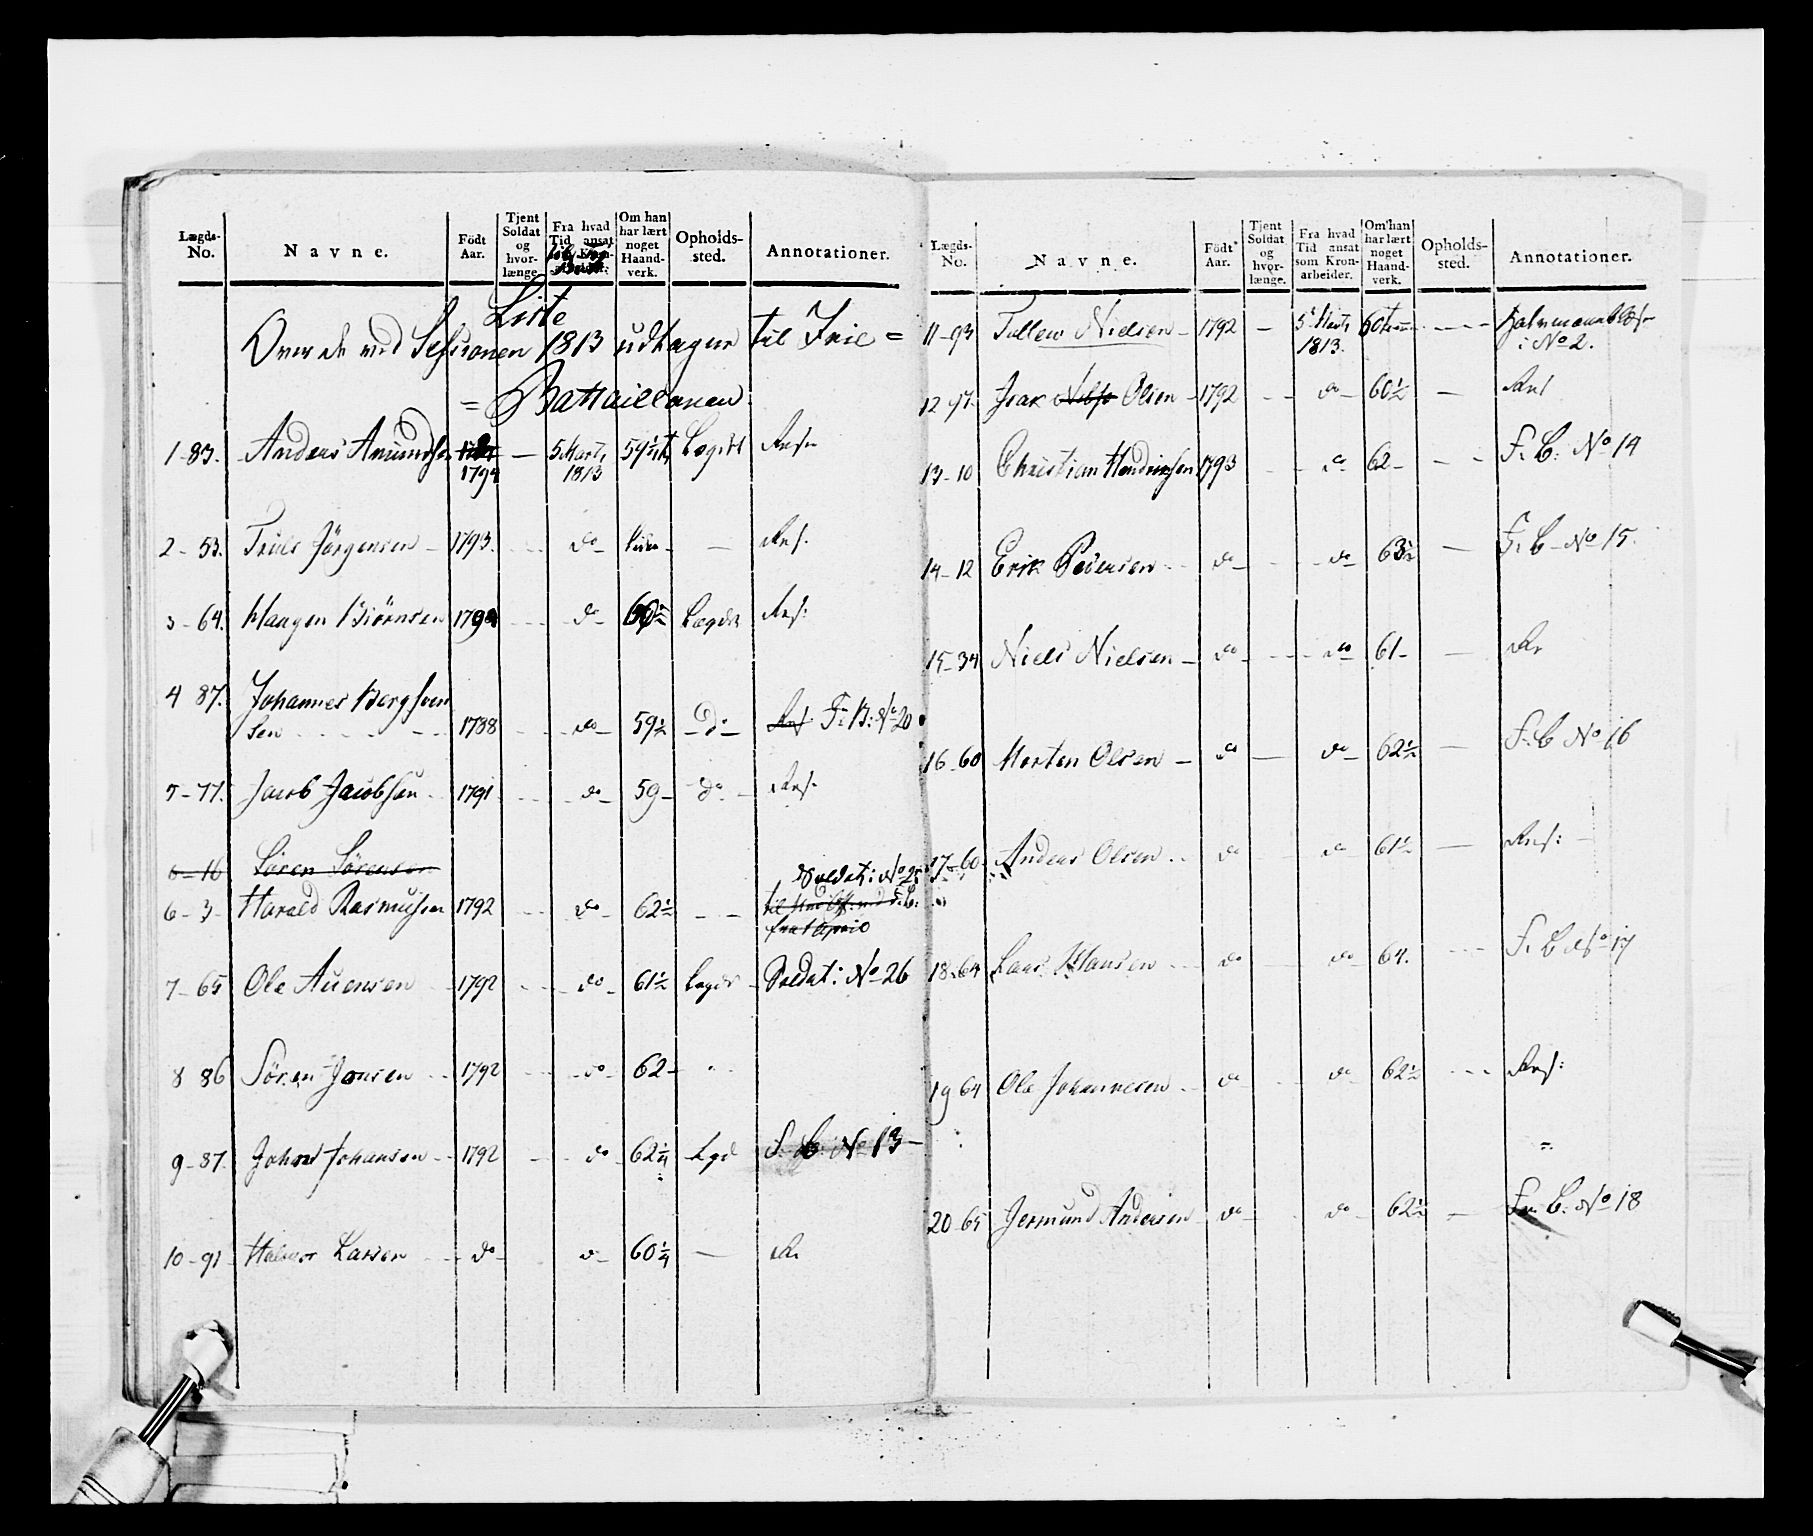 Lægds-No. Navne. Födt Aar. Tjent Soldat og hvor-længe. Fra hvad Tid ansat Om han har lært noget Haand-verk. Opholds-sted. Annotationer.
Liste
Over de ved Sessionen 1813 udtagne til Frie =
= Bataillonen
1 - 83. Anders Amundsen 1794 — 5 Marti 1813 59½ Lægdet Ans
2 - 53. Truls Jörgensen - 1793. do - Ans.
3 - 64. Haagen Biörnsen do - Lægdet Ans:
4 87. Johannes Bergsven
sen 1788 do - 59½ - do - Ans F: B: No 20
5 - 77. Jacob Jacobsen 1791 do - 59 - do - Ans.
6 - 16 Sören Sörensen
6 - 3 - Harald Rasmussen 1792 do - 62½ - - Soldat: No
7 - 65 Ole Auensen 1792 do - 61½ Lægdet - Soldat: No 26
8 86 Sören Jonsen 1792 do - 62 -
9 - 87. Johans Johansen 1792 do - 62¼ Lgd F. B: No 13 -
10 - 91 Halvor Larsen do - do - 60¼ — An
Lægds-No. Navne. Födt Aar. Tjent Soldat og hvor-længe. Fra hvad Tid ansat som Kron-arbeider. Om han har lært noget Haand-verk. Opholds-sted. Annotationer.
11 - 93 Tollew Nielsen - 1792 — 5 Marti 1813. 60
i No 2.
12 97. Isak Olsen - 1792 do - 60½ — Ans
13 - 10 Christian Hendrichsen 1793 do 62 - F. B: No 14
14 - 12 Erik Pedersen do - do - 63½ — F. B - No 15.
15 - 34 Niels Nielsen - do - do 61 - — An
16 - 60 Morten Olsen - do — do - 62½ — F: B No 16
17 - 60 Anders Olsen do do - 61½ — Ans: -
18 - 64 Lars Hansen do do - 64. F. B No 17
19 64 Ole Johannesen do do - 62½ Ans:
20 65 Jermund Andersen do - do - 62½ - Fr. B: No 18